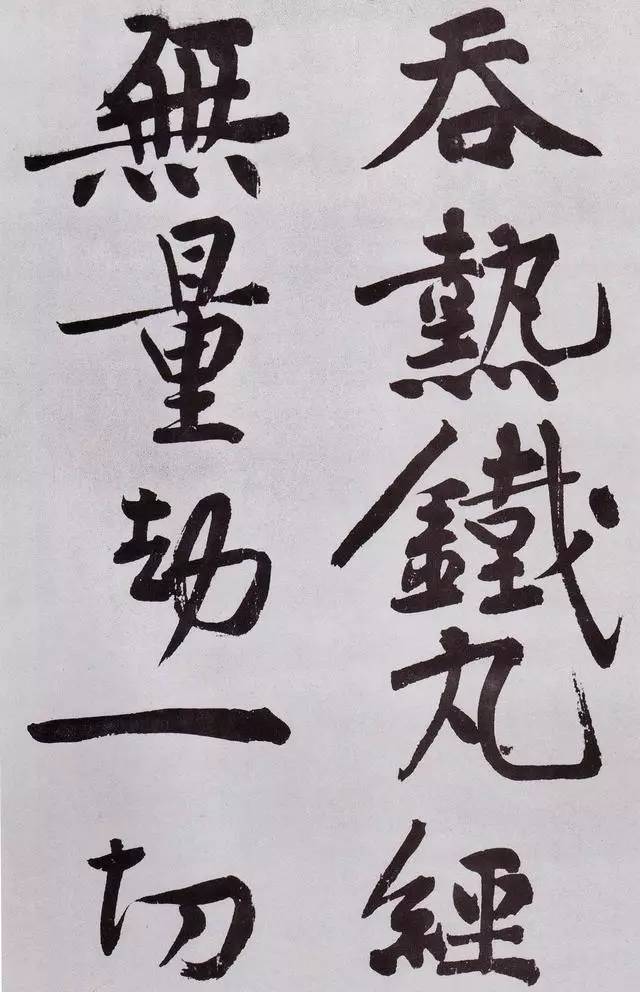 吞熱鐵丸經
無量劫一切